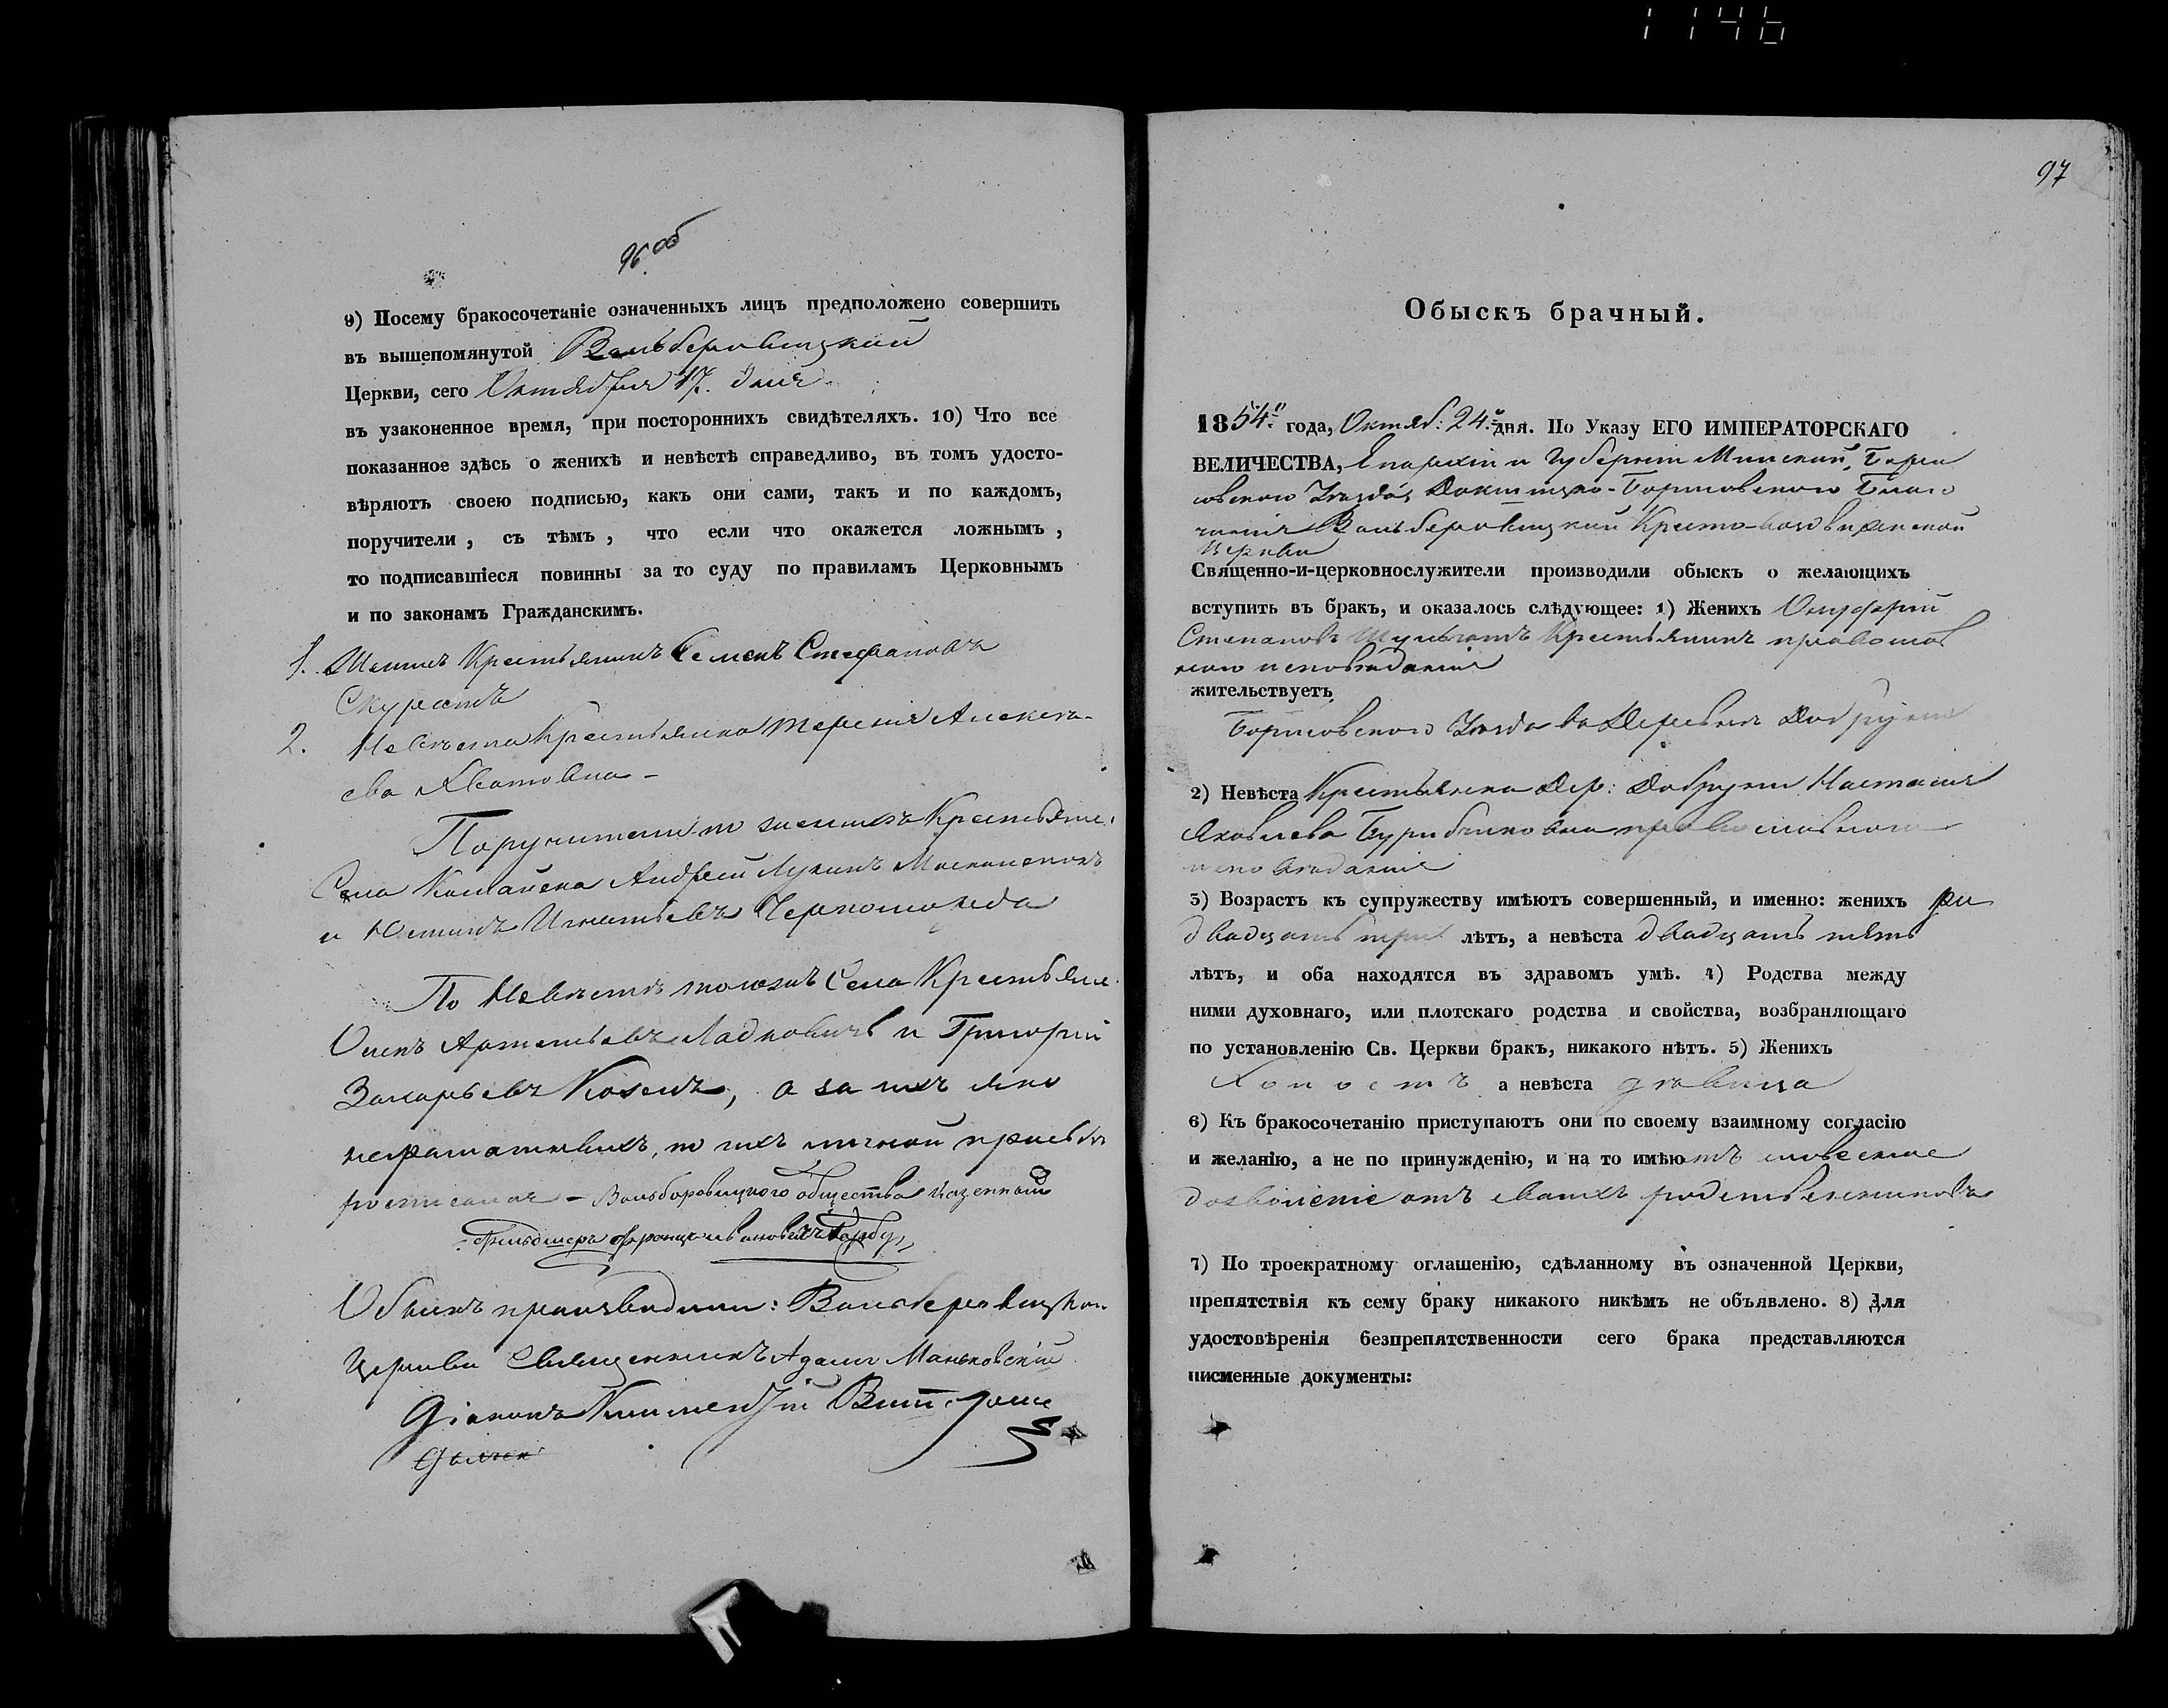 1146
96 об
9) Посему бракосочетаніе означенныхъ лицъ предположено совершить
въ вышепомянутой Вольберовицкой
Церкви, сего Октября 17. дня
въ узаконенное время, при постороннихъ свидѣтеляхъ. 10) Что все
показанное здѣсь о женихѣ и невѣстѣ справедливо, въ томъ удосто-
вѣряютъ своею подписью, какъ они сами, такъ и по каждомъ,
поручители, съ тѣмъ, что если что окажется ложнымъ,
то подписавшіеся повинны за то суду по правиламъ Церковнымъ
и по законамъ Гражданскимъ.
1. Женихъ Крестьянинъ Семенъ Стефановъ
Скуратъ
2. Невѣста Крестьянка Терезія Алексѣ-
ева
Поручители по женихѣ Крестьяне.
Села Андрей Лукинъ
и Юстинъ Игнатьевъ
По Невѣстѣ тогожъ Села Крестьяне.
Осипъ Ладковичъ и Григорій
Захарьевъ Козелъ, а за ихъ яко
неграматныхъ, по ихъ личной прозьбѣ
росписался – Вольборовицкого общества казенный
фельдшеръ Францъ Ивановичъ
Обыскъ производили: Вольберовицкой
Церкви Священникъ Адамъ Маньковскій
Діаконъ
97
Обыскъ брачный.
1854.го года, Октяб: 24.го дня. По Указу ЕГО ИМПЕРАТОРСКАГО
ВЕЛИЧЕСТВА, Епархіи и Губерніи Минской, Бори
совского Уѣзда, Докшицко-Борисовского Благо
чинія Вольберовицкой Кресто-воздвиженской
Церкви
Священно-и-церковнослужители производили обыскъ о желающихъ
вступить въ бракъ, и оказалось слѣдующее: 1) Женихъ Онуфрій
Степановъ Крестьянинъ православ
ного исповѣданія
жительствуетъ
Борисовского Уѣзда въ Деревнѣ Добруни
2) Невѣста Крестьянка Дер: Добруни Настасія
Яковлева православного
исповѣданія
3) Возрастъ къ супружеству имѣютъ совершенный, и именно: женихъ
двадцать три лѣтъ, а невѣста двадцать пять
лѣтъ, и оба находятся въ здравомъ умѣ. 4) Родства между
ними духовнаго, или плотскаго родства и свойства, возбраняющаго
по установленію Св. Церкви бракъ, никакого нѣтъ. 5) Женихъ
Холостъ а невѣста дѣвица
6) Къ бракосочетанію приступаютъ они по своему взаимному согласію
и желанію, а не по принужденію, и на то имѣютъ словесное
дозволеніе отъ своихъ родственниковъ
7) По троекратному оглашенію, сдѣланному въ означенной Церкви,
препятствія къ сему браку никакого никѣмъ не объявлено. 8) Для
удостовѣренія безпрепятственности сего брака представляются
писменные документы: